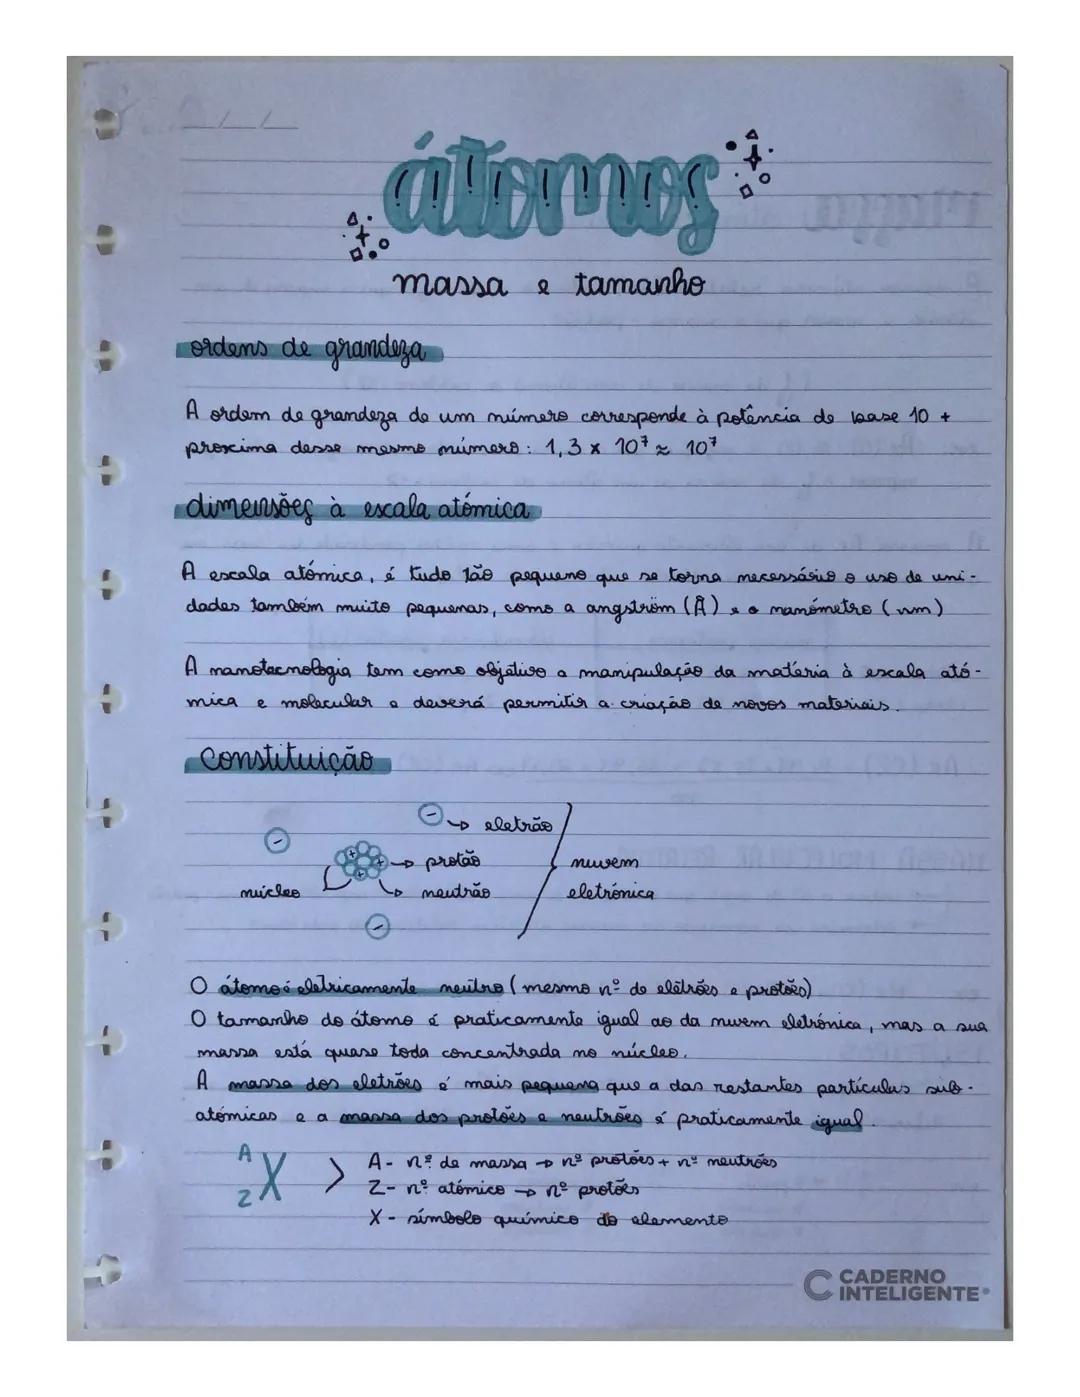 átomos
massa e tamanho
ordens de grandeza
A ordem de grandeza de um número corresponde à potência de base 10 +
proxima desse mesmo número: 1,3 x 10⁷ ≈ 10⁷
dimensões à escala atómica
A escala atómica, é tudo tão pequeno que se torna necessário o uso de uni-
dades também muito pequenas, como a angström (Å) e o nanómetro (nm)
A nanotecnologia tem como objetivo a manipulação da matéria à escala ató-
mica e molecular e deverá permitir a criação de novos materiais.
Constituição
- → eletrão
- + + + → protão
núcleo → neutrão
-
nuvem
eletrónica
O átomo é eletricamente neutro (mesmo nº de elétrões e protões)
O tamanho do átomo é praticamente igual ao da nuvem eletrónica, mas a sua
massa está quase toda concentrada no núcleo.
A massa dos eletrões é mais pequena que a das restantes partículas sub-
atómicas e a massa dos protões e neutrões é praticamente igual.
A Z X > A - nº de massa → nº protões + nº neutrões
Z - nº atómico → nº protões
X - símbolo químico do elemento
CADERNO
INTELIGENTE